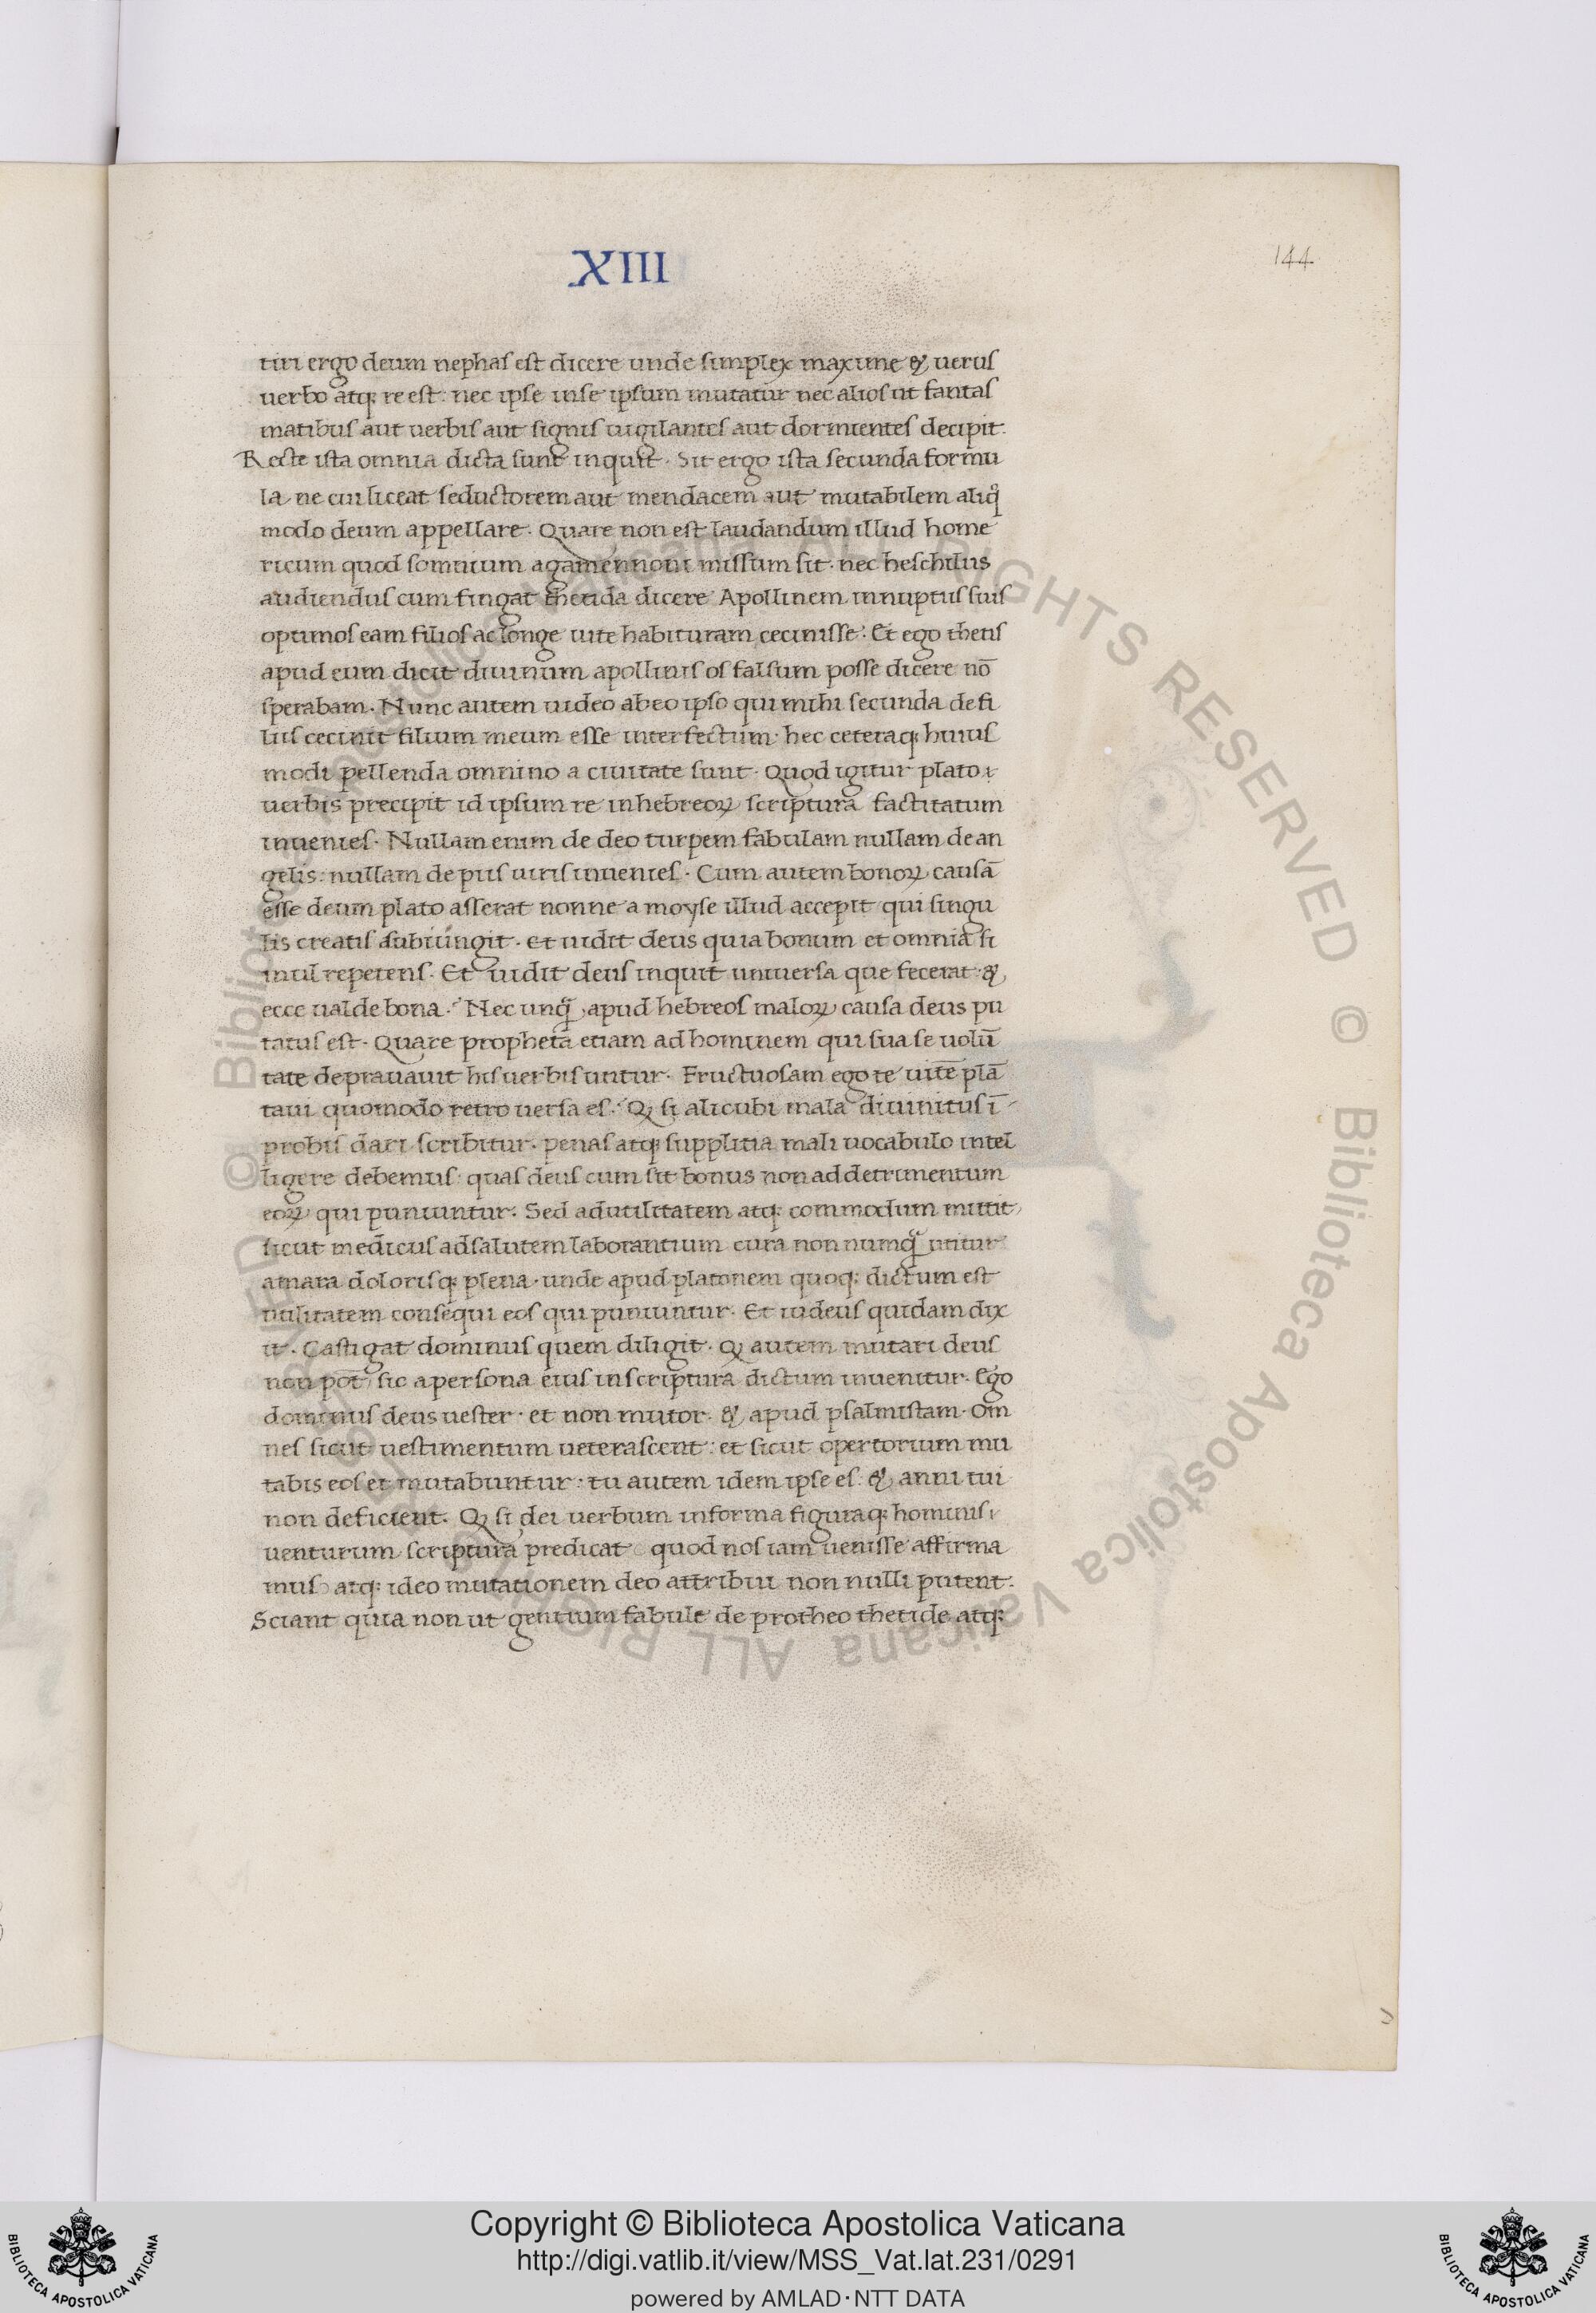 XIII
144
tiri ergo deum nephas est dicere unde simplex maxime & uerus
uerbo atq; re est: nec ipse inse ipsum mutatur nec alios ut fantas
matibus aut uerbis aut signis uigilantes aut dormientes decipit.
Recte ista omnia dicta sunt inquit. Sit ergo ista secunda formu
la ne cui liceat seductorem aut mendacem aut mutabilem aliqͦ
modo deum appellare. Quare non est laudandum illud home
ricum quod somnium agamennoni missum sit. nec heschilus
audiendus cum fingat thetida dicere Apollinem in nuptus suis
optimos eam filios ac longe uite habituram cecinisse. Et ego thetis
apud eum dicit diuinum apollinis os falsum posse dicere nō
sperabam. Nunc autem uideo abeo ipso qui mihi secunda de fi
liis cecinit filium meum esse interfectum. hec ceteraq; huius
modi pellenda omnino a ciuitate sunt. Quod igitur plato
uerbis precipit id ipsum re inhebreoꝝ scriptura factitatum
inuenies. Nullam enim de deo turpem fabulam nullam de an
gelis: nullam de piis uiris inuenies. Cum autem bonoꝝ causā
esse deum plato asserat nonne a moyse illud accepit qui singu
lis creatis subiungit. Et uidit deus quia bonum et omnia si
mul repetens. Et uidit deus inquit uniuersa que fecerat: &
ecce ualde bona. Nec unqͣ apud hebreos maloꝝ causa deus pu
tatus est. Quare propheta etiam ad hominem qui sua se uolū
tate deprauauit his uerbis utitur. Fructuosam ego te uitē plā
taui quomodo retro uersa es. Qꝫ si alicubi mala diuinitus ī
probis dari scribitur. penas atq; supplitia mali uocabulo intel
ligere debemus: quas deus cum sit bonus non ad detrimentum
eoꝝ qui puniuntur. Sed ad utilitatem atq; commodum mittit
sicut medicus ad salutem laborantium cura non numqͣ utitur
amara dolorisq; plena. unde apud platonem quoq; dictum est
utilitatem consequi eos qui puniuntur. Et iudeus quidam dix
it. Castigat dominus quem diligit. Qꝫ autem mutari deus
non pōt sic a persona eius in scriptura dictum inuenitur. Ego
dominus deus uester. et non mutor. & apud psalmistam. Om
nes sicut uestimentum ueterascent: et sicut opertorium mu
tabis eos et mutabuntur: tu autem idem ipse es: & anni tui
non deficient. Qꝫ si dei uerbum in forma figuraq; hominis
uenturum scriptura predicat quod nos iam uenisse affirma
mus atq; ideo mutationem deo attribui non nulli putent.
Sciant quia non ut gentium fabule de protheo thetide atq;
© Biblioteca Apostolica Vaticana ALL RIGHTS RESERVED
© Biblioteca Apostolica Vaticana ALL RIGHTS RESERVED
BIBLIOTECA APOSTOLICA VATICANA
Copyright © Biblioteca Apostolica Vaticana
http://digi.vatlib.it/view/MSS_Vat.lat.231/0291
powered by AMLAD·NTT DATA
BIBLIOTECA APOSTOLICA VATICANA